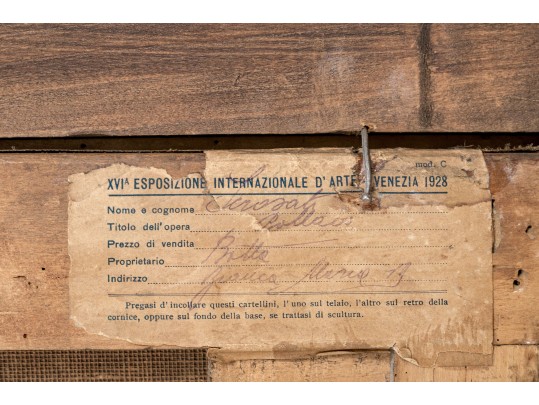 mod. C
XVIᴬ ESPOSIZIONE INTERNAZIONALE D'ARTE VENEZIA 1928
Nome e cognome
Titolo dell'opera
Prezzo di vendita
Proprietario
Indirizzo
Pregasi d'incollare questi cartellini, l'uno sul telaio, l'altro sul retro della
cornice, oppure sul fondo della base, se trattasi di scultura.